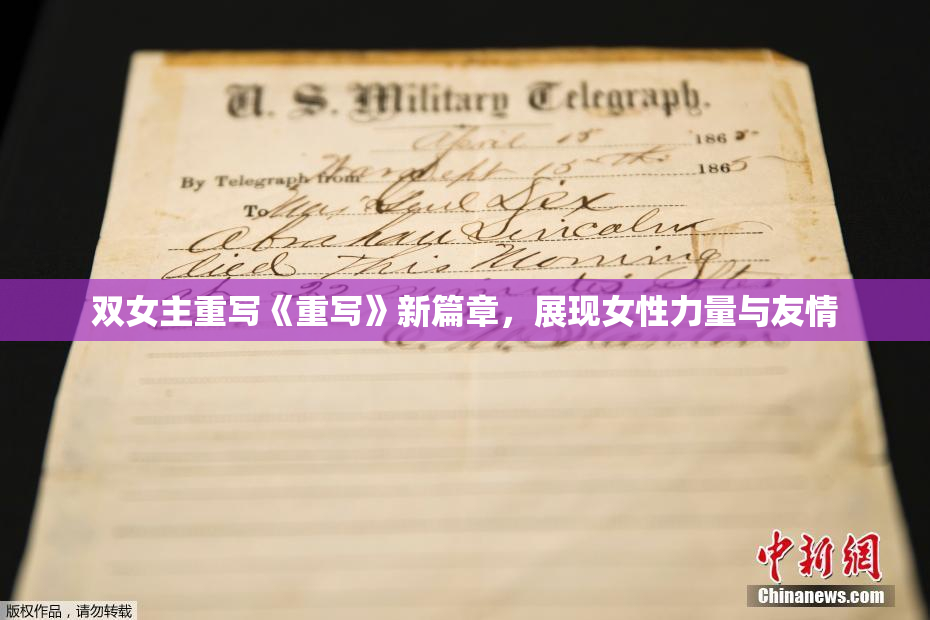 U. S. Military Telegraph.
April 15 1865
By Telegraph from War Dept 15th 1865
To Maj Genl Dix
Abraham Lincoln
died This Morning
22 minutes after
双女主重写《重写》新篇章，展现女性力量与友情
E. M. Stanton
中新网
Chinanews.com
版权作品，请勿转载